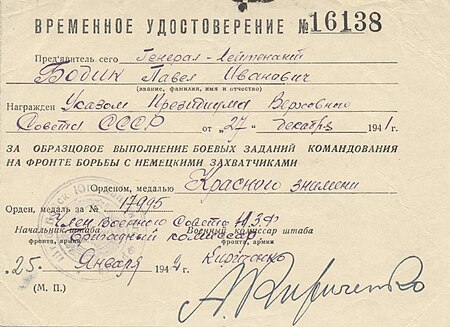 ВРЕМЕННОЕ УДОСТОВЕРЕНИЕ № 16138
Пред'явитель сего Генерал-лейтенант
Бодин Павел Иванович
(звание, фамилия, имя и отчество)
Награжден Указом Президиума Верховного
Совета СССР от „27" декабря 1941 г.
ЗА ОБРАЗЦОВОЕ ВЫПОЛНЕНИЕ БОЕВЫХ ЗАДАНИЙ КОМАНДОВАНИЯ
НА ФРОНТЕ БОРЬБЫ С НЕМЕЦКИМИ ЗАХВАТЧИКАМИ
Орденом, медалью Красного знамени
Орден, медаль за № 17995
Член Военного Совета Ю.З.Ф.
Начальник штаба Военный комиссар штаба
фронта, армии фронта, армии
Бригадный комиссар
„25" Января 1942 г. Кириченко
(М. П.) А. Кириченко